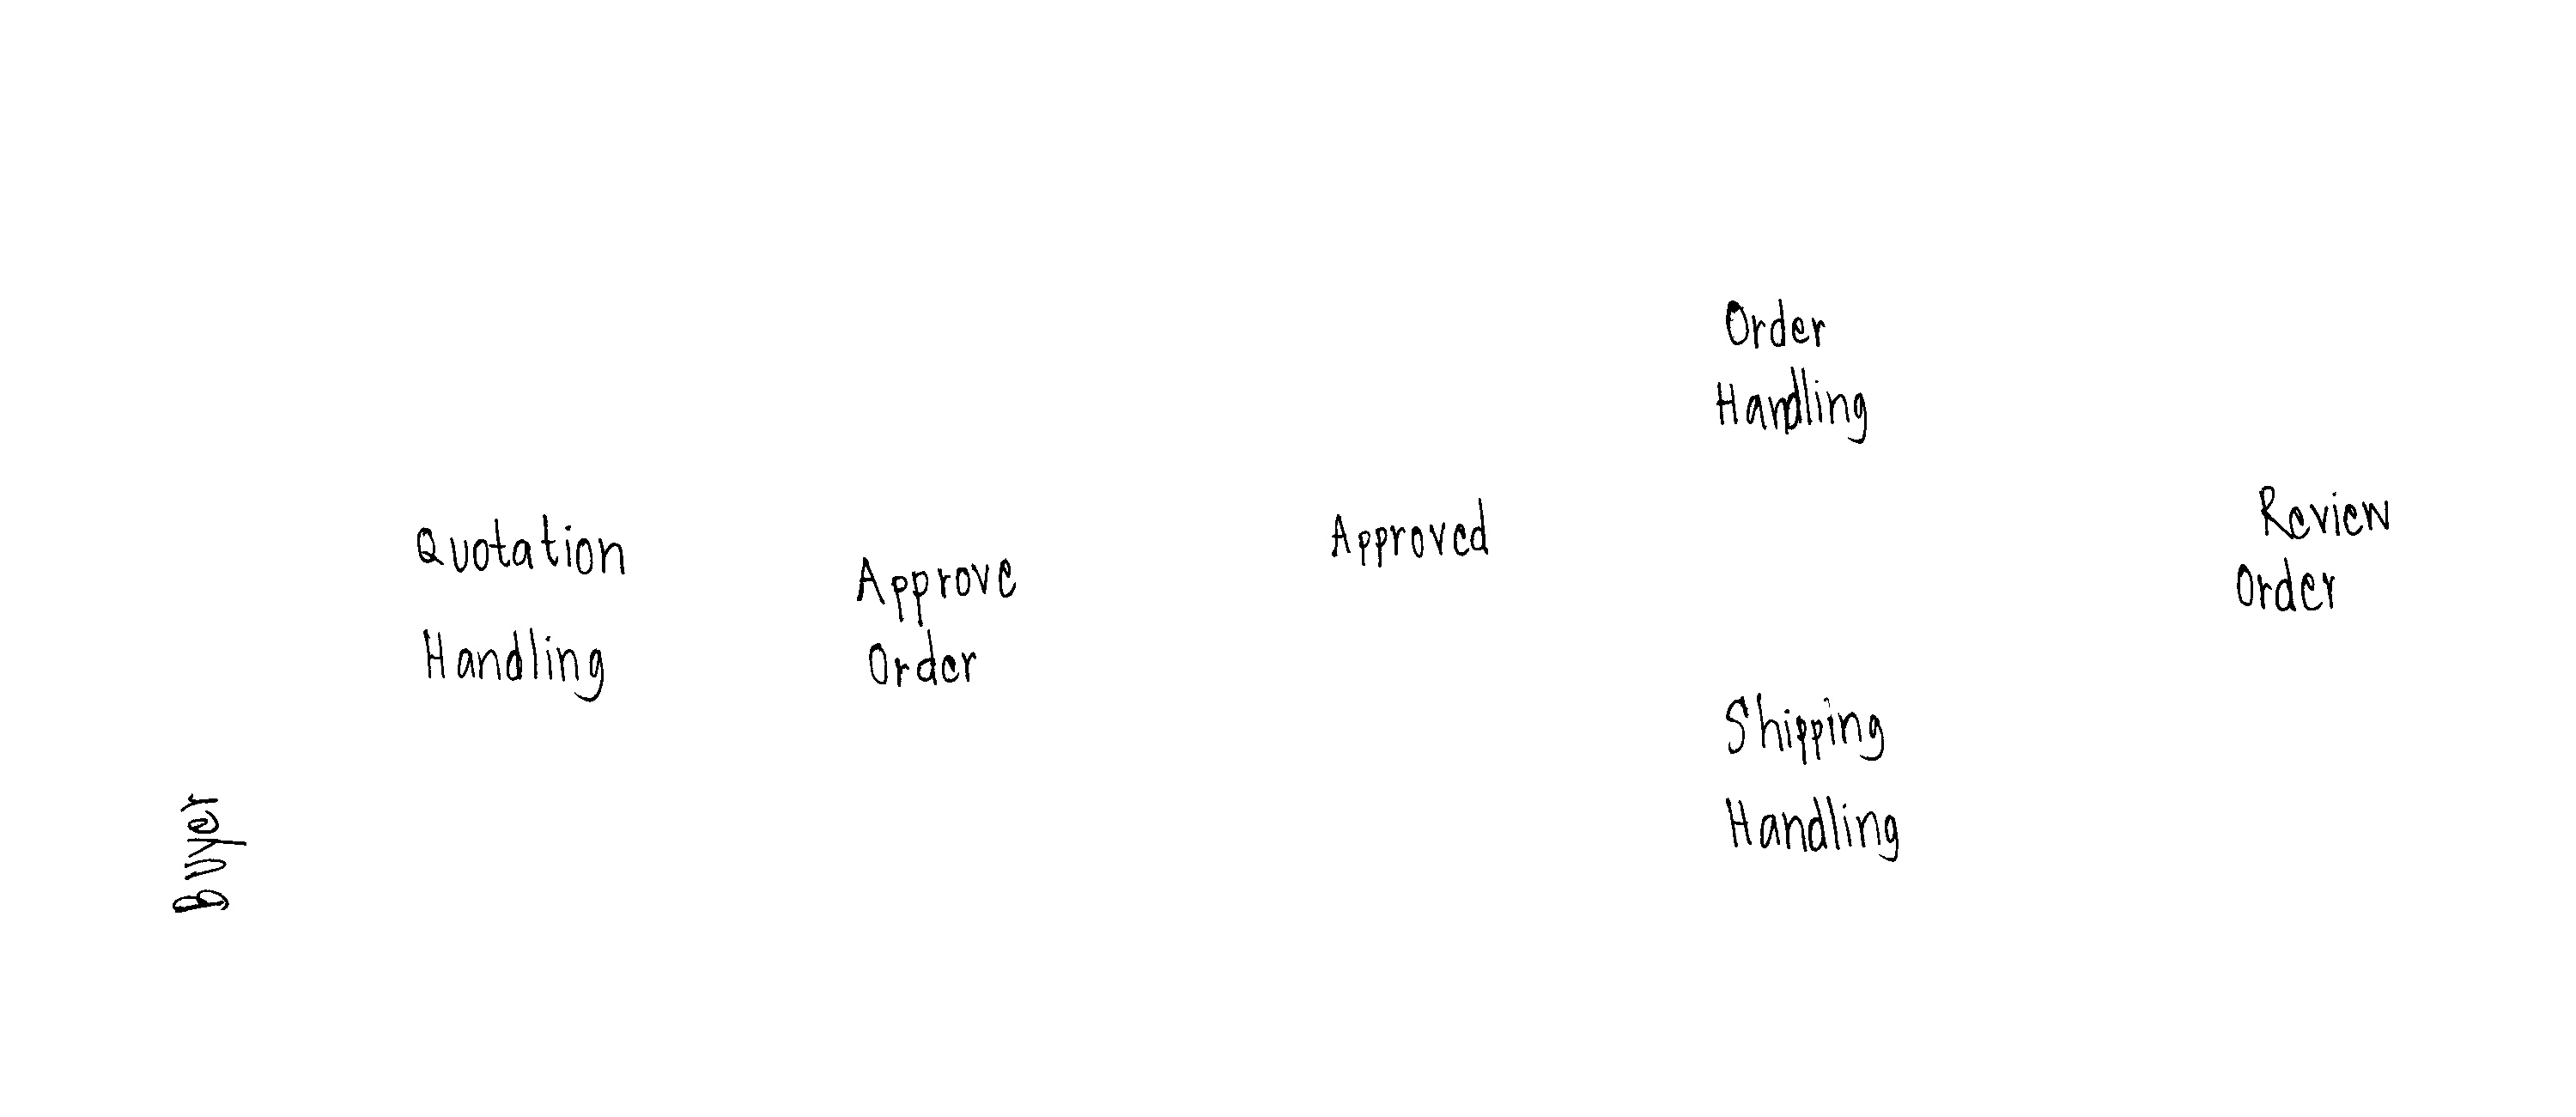 Buyer
Quotation
Handling
Approve
Order
Approved
Order
Handling
Shipping
Handling
Review
Order